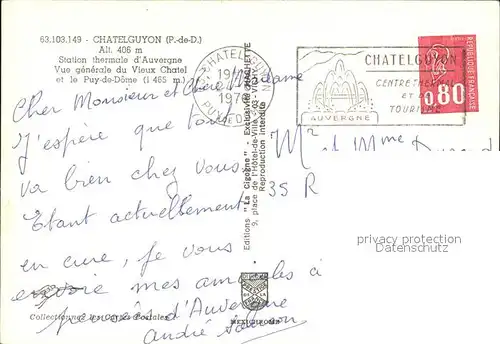 63.103.149 - CHATELGUYON (P.-de-D.)
Alt. 406 m
Station thermale d'Auvergne
Vue générale du Vieux Chatel
et le Puy-de-Dôme (1 465 m.)
CHATELGUYON
19
197
PUY DE D
CHATELGUYON
CENTRE THERMAL
ET
TOURISME
AUVERGNE
REPUBLIQUE FRANÇAISE
0,80
Cher Monsieur et Chère Madame
J'espère que tout
va bien chez vous
Etant actuellement
en cure, je vous
envoie mes amicales
pensées d'Auvergne
André
Mr et Mme
35 R
Editions "La Cigogne" - Exclusivité HACHETTE
9, place de l'Hôtel-de-Ville
Reproduction interdite
privacy protection
Datenschutz
Collectionnez les Cartes Postales
MEXICHROME